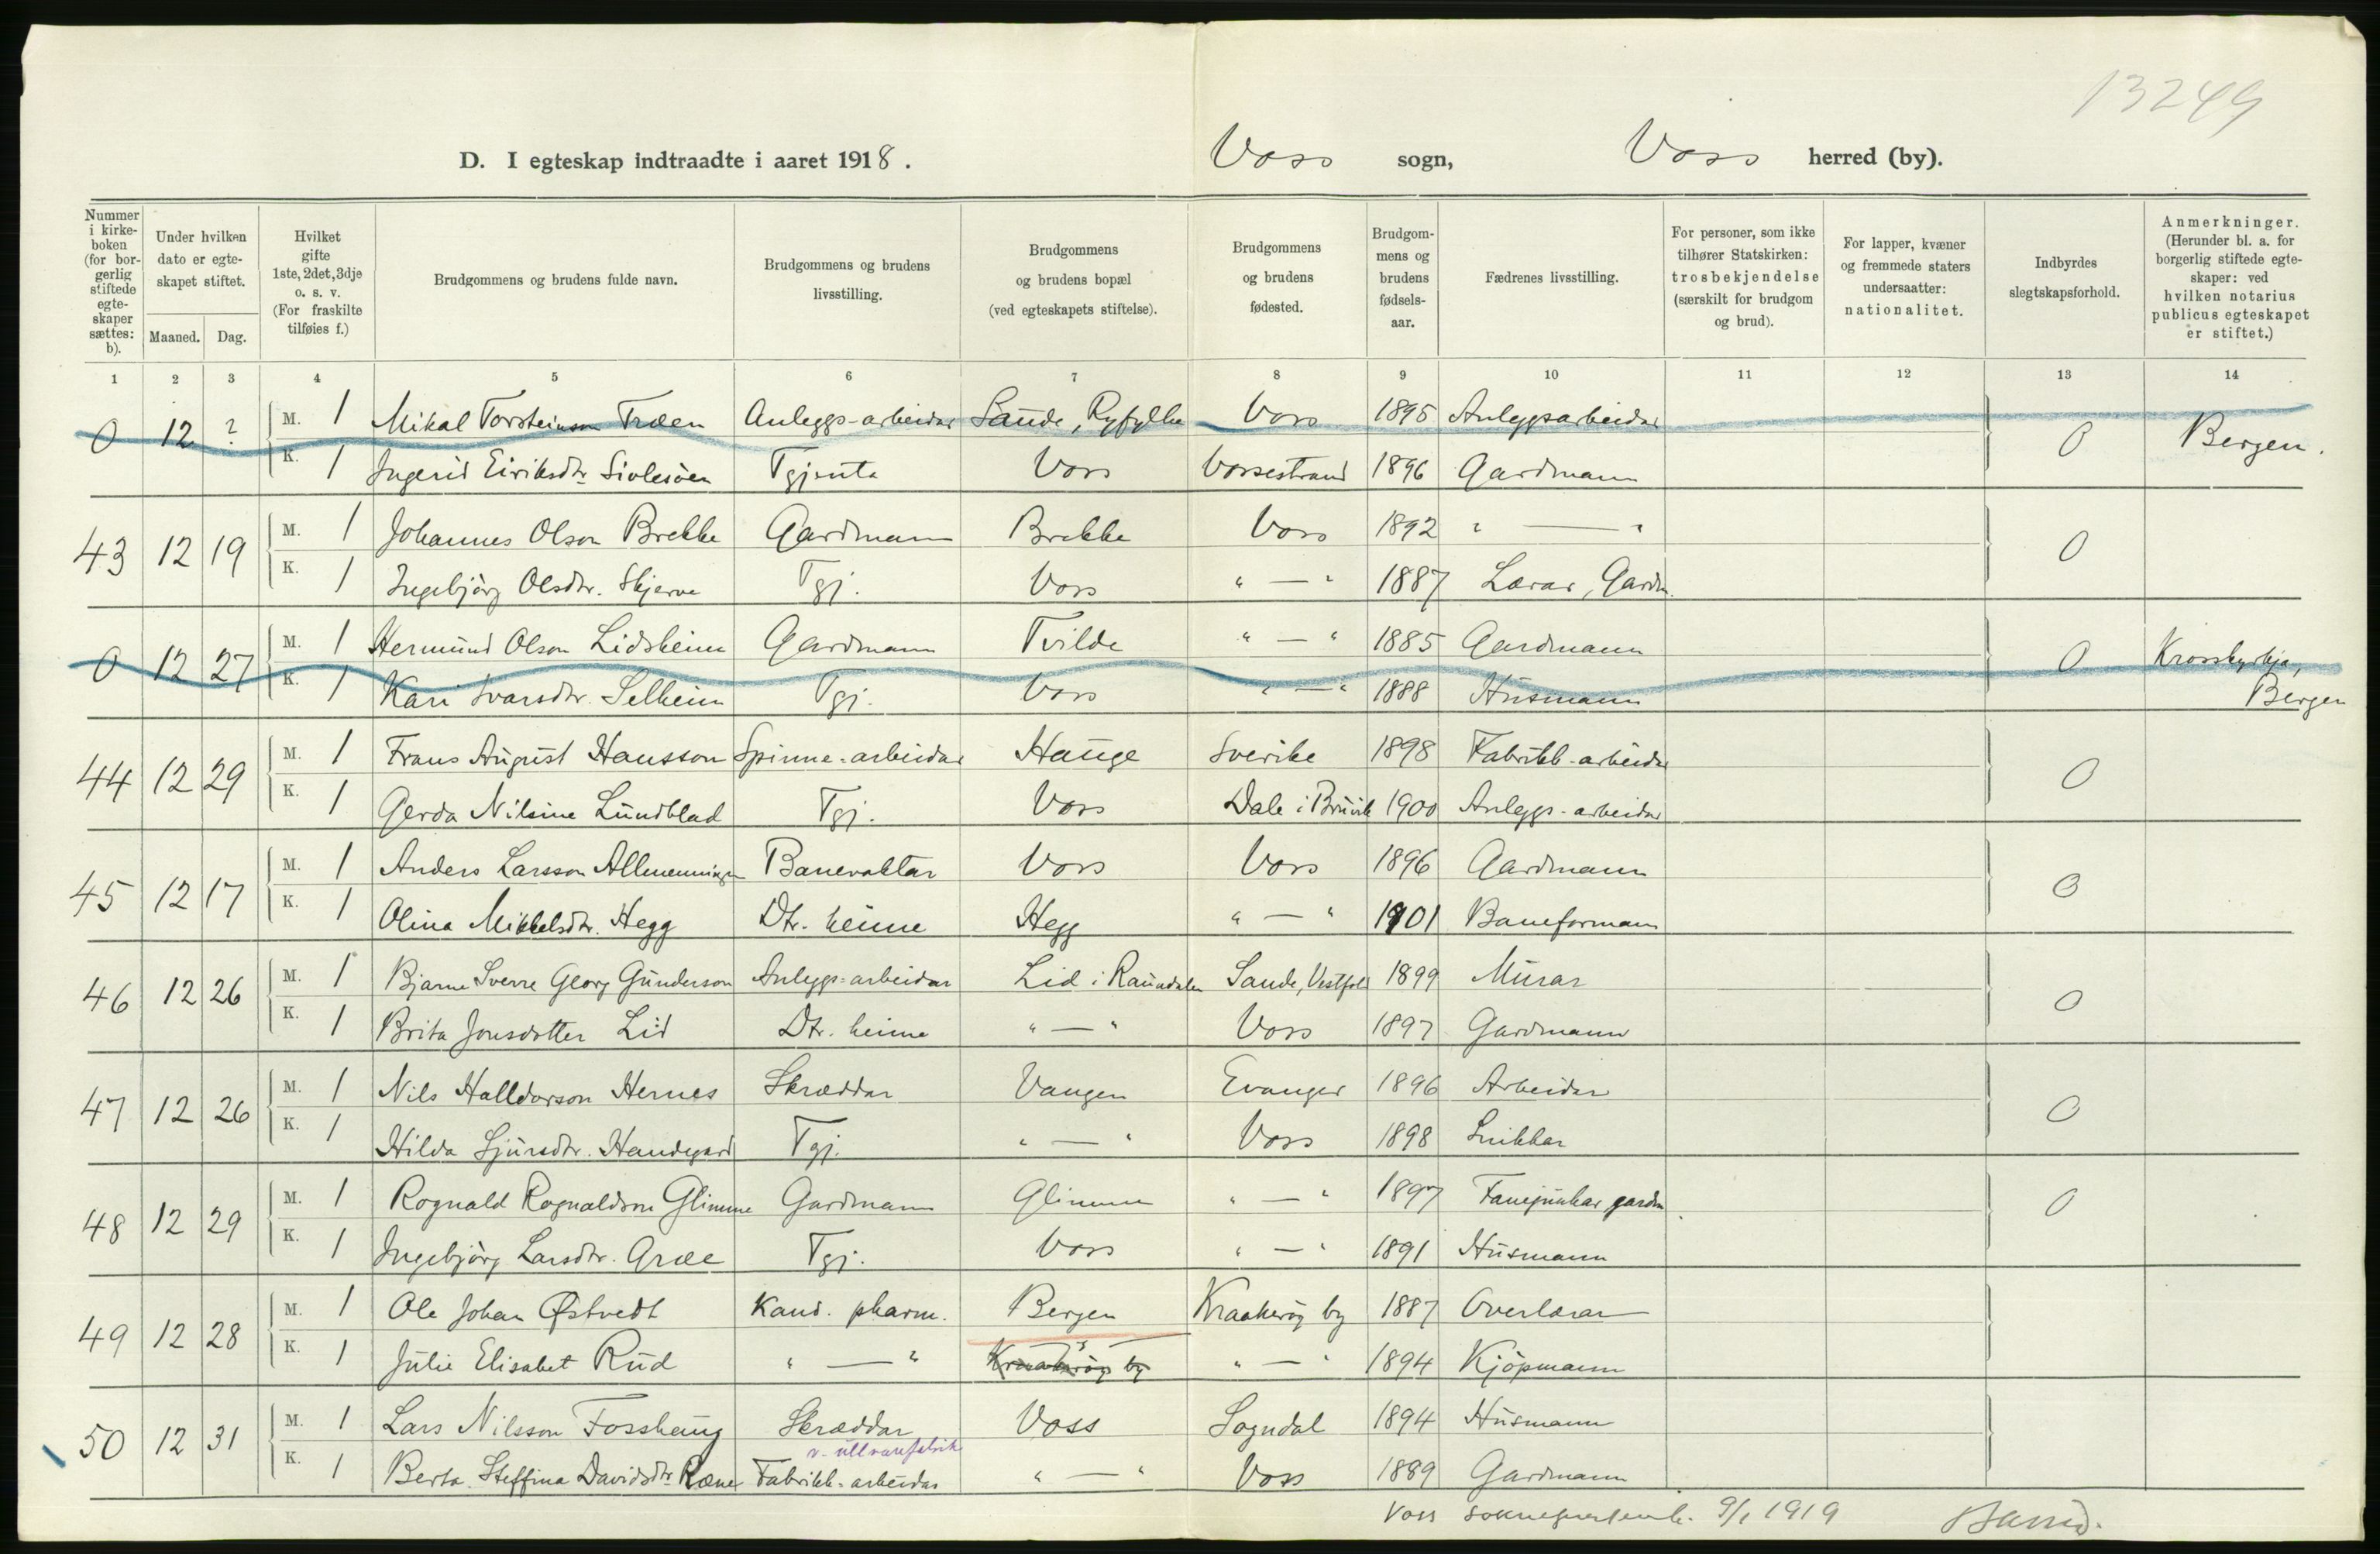 13249
D. I egteskap indtraadte i aaret 1918. Voss sogn, Voss herred (by).
Nummer i kirkeboken (for borgerlig stiftede egteskaper sættes: b). Under hvilken dato er egteskapet stiftet. Maaned. Dag. Hvilket gifte 1ste, 2det, 3dje o. s. v. (For fraskilte tilføies f.) Brudgommens og brudens fulde navn. Brudgommens og brudens livsstilling. Brudgommens og brudens bopæl (ved egteskapets stiftelse). Brudgommens og brudens fødested. Brudgommens og brudens fødselsaar. Fædrenes livsstilling. For personer, som ikke tilhører Statskirken: trosbekjendelse (særskilt for brudgom og brud). For lapper, kvæner og fremmede staters undersaatter: nationalitet. Indbyrdes slegtskapsforhold. Anmerkninger. (Herunder bl. a. for borgerlig stiftede egteskaper: ved hvilken notarius publicus egteskapet er stiftet.)
1 2 3 4 5 6 7 8 9 10 11 12 13 14
0 12 ? M. 1 Mikal Torsteinson Træen Anleggs-arbeidar Saude, Ryfylke Voss 1895 Anleggsarbeidar 0 Bergen.
K. 1 Ingerid Eiriksdtr. Sivlesøen Tgjenta Voss Vossestrand 1896 Gardmann
43 12 19 M. 1 Johannes Olson Brekke Gardmann Brekke Voss 1892 " — " 0
K. 1 Ingebjörg Olsdtr. Skjerve Tgj. Voss " — " 1887 Lærar, Gardm.
0 12 27 M. 1 Hermund Olson Lidsheim Gardmann Tvilde " — " 1885 Gardmann 0 Krosskyrkja, Bergen
K. 1 Kari Ivarsdtr. Selheim Tgj. Voss " — " 1888 Husmann
44 12 29 M. 1 Frans August Hansson Spinne-arbeidar Hauge Sverike 1898 Fabrikk-arbeidar 0
K. 1 Gerda Nilsine Lundblad Tgj. Voss Dale i Bruvik 1900 Anleggs-arbeidar
45 12 17 M. 1 Anders Larsson Allmenningen Banevaktar Voss Voss 1896 Gardmann 0
K. 1 Olina Mikkelsdtr. Hegg Dtr. heime Hegg " — " 1901 Baneformann
46 12 26 M. 1 Bjarne Sverre Georg Gunderson Anleggs-arbeidar Lid i Raundalen Sande, Vestfold 1899 Murar 0
K. 1 Brita Jonsdotter Lid Dtr. heime " — " Voss 1897 Gardmann
47 12 26 M. 1 Nils Halldorson Hernes Skræddar Vangen Evanger 1896 Arbeidar 0
K. 1 Hilda Sjursdtr. Handegard Tgj. " — " Voss 1898 Snikkar
48 12 29 M. 1 Rognald Rognaldson Glimme Gardmann Glimme " — " 1897 Fanejunkar gardm. 0
K. 1 Ingebjörg Larsdtr. Græe Tgj. Voss " — " 1891 Husmann
49 12 28 M. 1 Ole Johan Østvedt Kand. pharm. Bergen Kraakerøy by 1887 Overlærar
K. 1 Julie Elisabet Rud " — " Kraakerøy by " — " 1894 Kjöpmann
50 12 31 M. 1 Lars Nilsson Fosshaug Skræddar Voss Sogndal 1894 Husmann
v. ullvarefabrik
K. 1 Berta Steffina Davidsdtr. Ræne Fabrikk-arbeidar " — " Voss 1889 Gardmann
Voss 9/1 1919